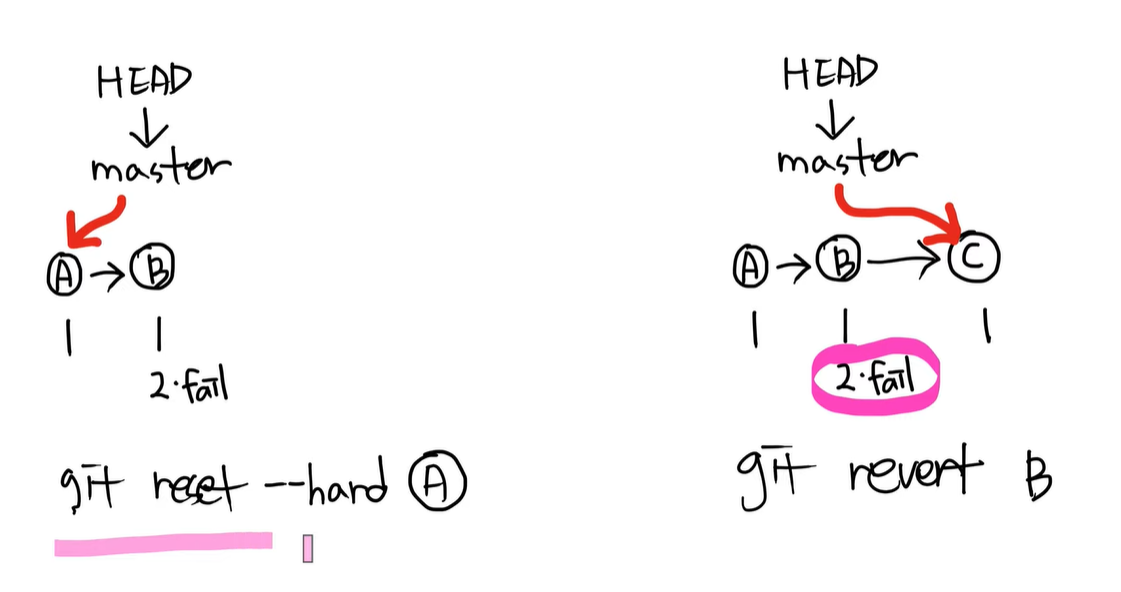 HEAD
master
A → B
1 1
2.fail
git reset --hard A
HEAD
master
A → B → C
1 1 1
2.fail
git revert B